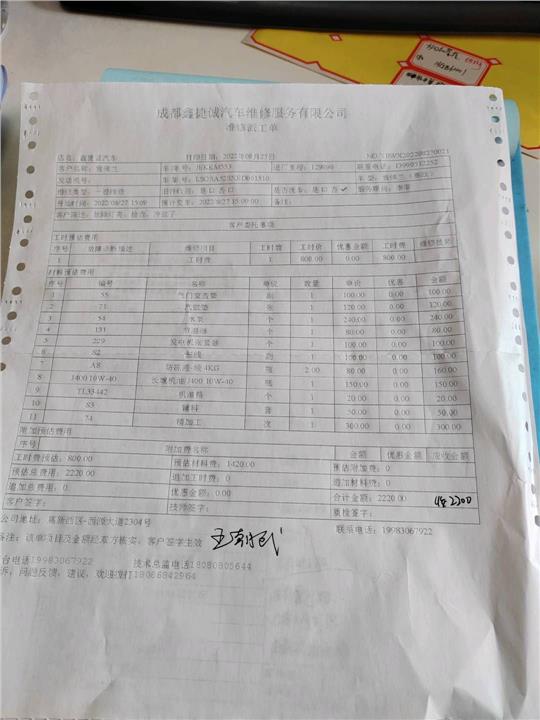 成都鑫捷诚汽车维修服务有限公司
维修派工单
店名: 鑫捷诚汽车 打印日期: 2022年08月27日
客户名称:
发动机号:
维修类型: 一般维修
开始时间: 2022/08/27 15:09 预计交车: 2022/8/27 18:00:00 备注:
客户委托事项
工时预估费用
序号 故障诊断描述 维修项目 工时数 工时价 优惠金额 工时费 维修技师
1 工时费 1 800.00 0.00 800.00
材料预估费用
序号 编号 名称 单位 数量 单价 优惠 金额
1 55 气门室盖垫 副 1 100.00 0.00 100.00
2 71 汽缸垫 张 1 120.00 0.00 120.00
3 54 水泵 个 1 240.00 0.00 240.00
4 131 节温器 个 1 80.00 0.00 80.00
5 229 发电机张紧器 个 1 100.00 0.00 100.00
6 52 缸线 副 1 100.00 0.00 100.00
7 A8 防冻液-绿 4KG 瓶 2.00 80.00 0.00 160.00
8 J400 10W-40 长城机油J400 10W-40 瓶 1 150.00 0.00 150.00
9 TL33442 机油格 个 1 20.00 0.00 20.00
10 S3 辅料 套 1 50.00 0.00 50.00
11 74 精加工 次 1 300.00 0.00 300.00
附加预估费用
序号 附加费名称 金额 优惠金额 应收金额
工时费预估: 800.00 预估材料费: 1420.00 预估附加费: 0
预估总费用: 2220.00 追加工时费: 0 追加材料费: 0
追加总费用: 0 优惠金额: 0.00 合计金额: 2220.00 2200
客户签字: 技师签字: 质检签字:
公司地址: 高新西区-西源大道2304号 联系电话: 19983067922
备注: 该单项目及金额经双方核实, 客户签字生效
台电话19983067922 技术总监电话18080805644
诉, 问题反馈, 建议, 欢迎拨打18066842964